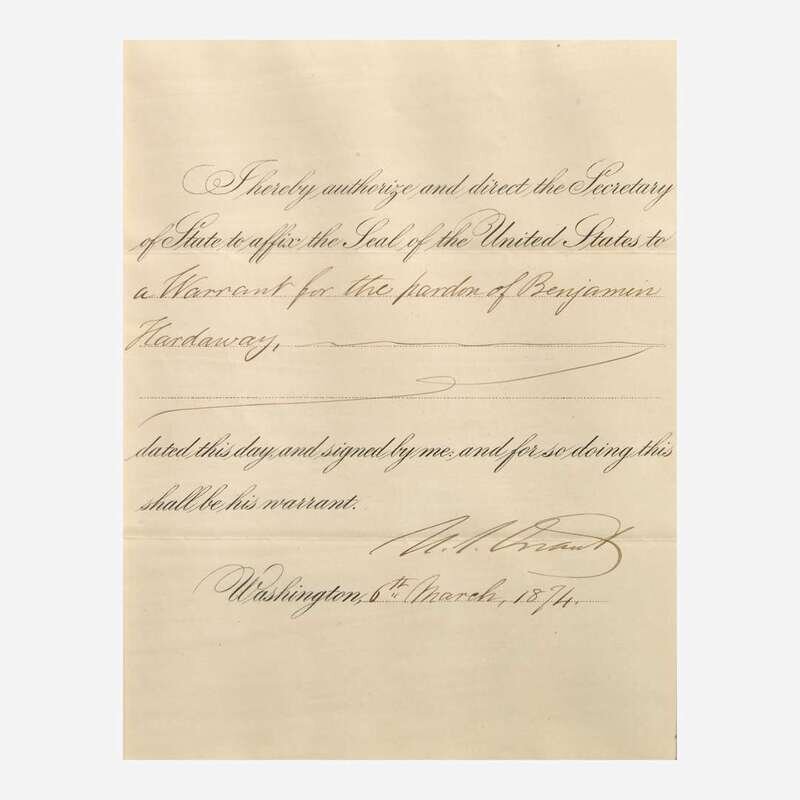 I hereby authorize and direct the Secretary
of State to affix the Seal of the United States to
a Warrant for the pardon of Benjamin
Hardaway,
dated this day, and signed by me: and for so doing this
shall be his warrant.
U. S. Grant
Washington, 6th March, 1874.